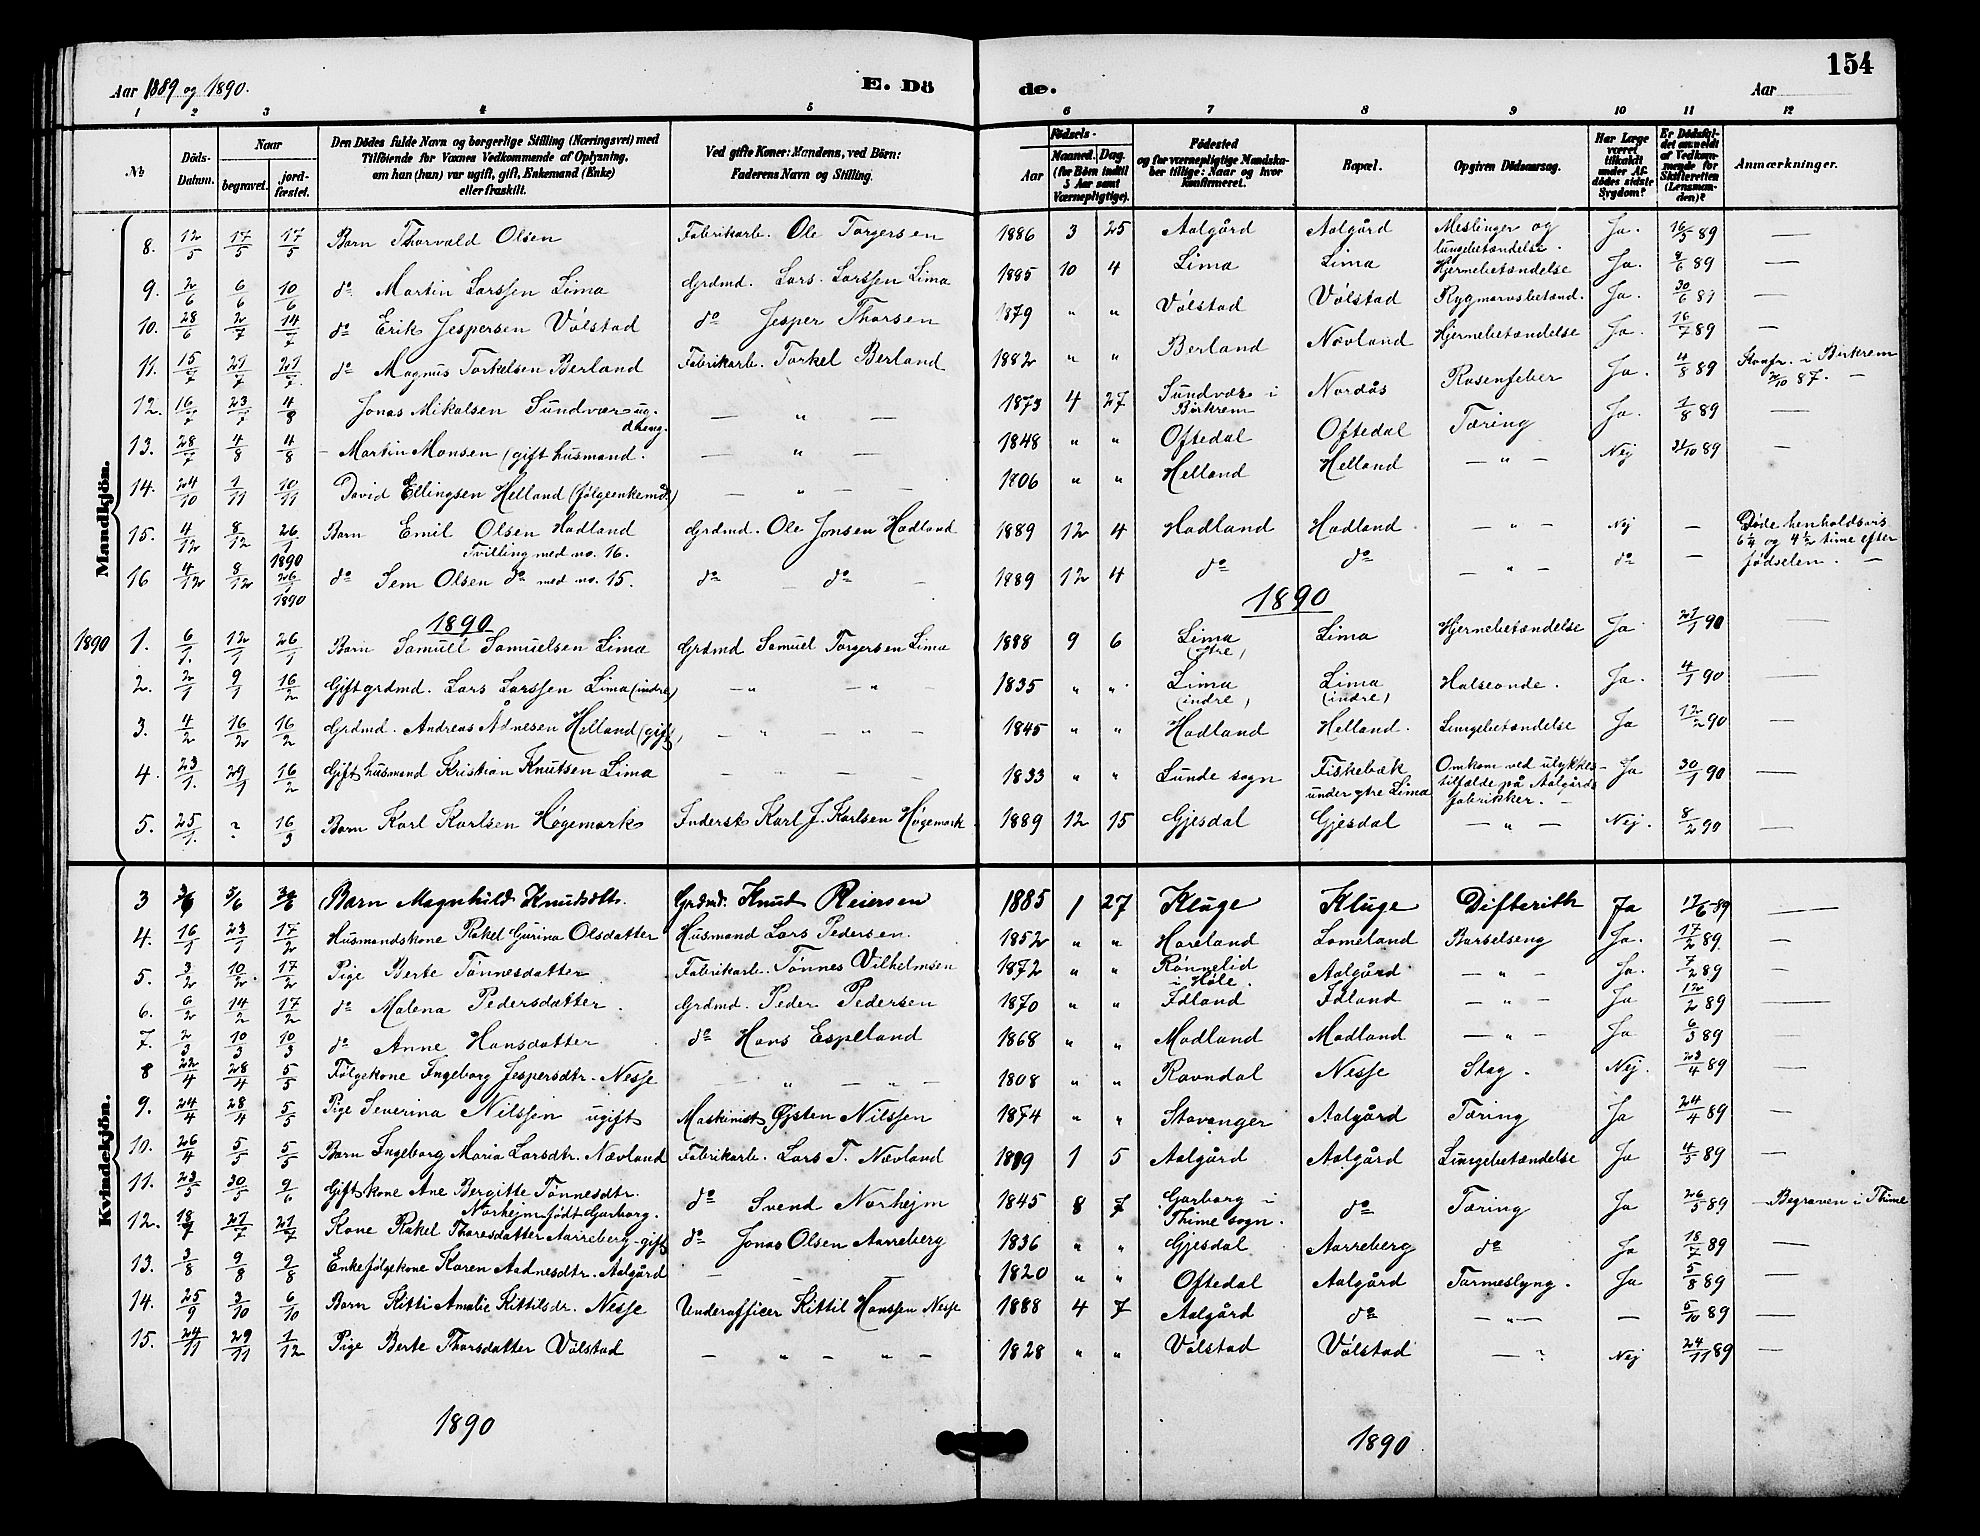 Aar 1889 og 1890.
E. Dö
de.
Aar
154
1 2 3 4 5 6 7 8 9 10 11 12
No
Döds-Datum.
Naar
begravet.
jord-fæstet.
Den Dödes fulde Navn og borgerlige Stilling (Næringsvei) med
Tilföiende for Voxnes Vedkommende af Oplysning,
om han (hun) var ugift, gift, Enkemand (Enke)
eller fraskilt.
Ved gifte Koner: Mandens, ved Börn:
Faderens Navn og Stilling.
Födsels-
Aar
Maaned. Dag.
(for Börn indtil
5 Aar samt
Værnepligtige).
Födested
og for værnepligtige Mandska-
ber tillige: Naar og hvor
konfirmeret.
Bopæl.
Opgiven Dödsaarsag.
Har Læge
været
tilkaldt
under Af-
dödes sidste
Sygdom?
Er Dödsfal-
det anmeldt
af Vedkom-
mende for
Skifteretten
(Lensman-
den)?
Anmærkninger.
Mandkjön.
8. 12/5 17/5 17/5 Barn Thorvald Olsen Fabrikarb. Ole Torgersen 1886 3 25 Aalgård Aalgård Meslinger og lungebetændelse. Ja. 16/5 89 —
9. 2/6 6/6 10/6 do Martin Larssen Lima Grdmd. Lars Larssen Lima 1885 10 4 Lima Lima Hjernebetændelse Ja. 4/6 89 —
10. 28/6 2/7 14/7 do Erik Jespersen Vølstad do Jesper Thorsen 1879 " " Vølstad Vølstad Rygmarvsbetænd. Ja. 30/6 89 —
11. 15/7 21/7 21/7 do Magnus Torkelsen Berland Fabrikarb. Torkel Berland 1882 " " Berland Nævland Hjernebetændelse Ja. 16/7 89 —
12. 16/7 23/7 4/8 Jonas Mikalsen Sundvor ug. dreng. — " — 1873 4 27 Sundvor i Birkrem Nordås Rosenfeber Ja. 4/8 89 Konfr. i Birkrem 2/10 87. —
13. 28/7 4/8 4/8 – Martin Monsen (gift husmand. — " — 1848 " " Oftedal Oftedal Tæring Ja. 1/8 89 —
14. 24/10 1/11 10/11 David Ellingsen Helland (følgeenkemd.) — " — — 1806 " " Helland Helland — " — Nej 31/10 89 —
15. 4/12 8/12 26/1 1890 Barn Emil Olsen Hadland Tvilling med no. 16. Grdmd. Ole Jonsen Hadland 1889 12 4 Hadland Hadland — " — Nej — Døde henholdsvis
16 4/12 8/12 26/1 1890 do Sem Olsen do med no. 15. do — do — 1889 12 4 do do — " — do — 6 1/4 og 4 1/2 time efter fødselen. —
1890
1890
1890 1. 6/1. 12/1 26/1 Barn Samuel Samuelsen Lima Grdmd Samuel Torgersen Lima 1888 9 6 Lima (ytre) Lima Hjernebetændelse Ja 21/1 90 —
2. 2/1 9/1 16/2 Gift grdmd. Lars Larssen Lima (indre) — " — " — 1835 " " Lima (indre) Lima (indre) Halseonde. Ja. 4/1 90 —
3. 4/2 16/2 16/2 Grdmd. Andreas Ådnesen Helland (gift) — " — " — 1845 " " Hadland Helland. Lungebetændelse Ja 12/2 90 —
4. 23/1. 29/1 16/2 Gift husmand Kristian Knutsen Lima — " — — 1833 " " Lunde sogn Fiskebæk under ytre Lima Omkom ved ulykkes-tilfælde på Aalgårds fabrikker. — Ja 30/1 90
5. 25/1. ? 16/3 Barn Karl Karlsen Høgemark Inderst Karl J. Karlsen Høgemark 1889 12 15 Gjesdal Gjesdal — " — Nej. 8/2 90 —
Kvindekjön.
3 3/6 5/6 30/6 Barn Magnhild Knudsdtt. Grdmd. Knud Reiersen 1885 1 27 Kluge Kluge Difterith Ja 17/6 89 —
4. 16/1 23/1 17/2 Husmandskone Rakel Gurina Olsdatter Husmand Lars Pedersen. 1852 " " Hareland Lomeland Barselseng Ja. 17/2 89. —
5. 3/2 10/2. 17/2 Pige Berte Tønnesdatter Fabrikarb. Tønnes Vilhelmsen 1872 " " Rønnelid i Høle. Aalgård — " — Ja. 7/2 89 —
6. 6/2 14/2 17/2 do Malena Pedersdatter. Grdmd. Peder Pedersen 1870 " " Idland Idland — " — Ja 12/2 89 —
7. 2/3 10/3 10/3 do Anne Hansdatter do Hans Espeland 1868 " " Madland Madland — " Ja 6/3 89 —
8 22/4 28/4 5/5 Følgekone Ingeborg Jespersdtr. Nesse — " — " — 1808 " " Ravndal Nesse Slag. Nej. 23/4 89 —
9. 24/4 28/4 5/5 Pige Severina Nilssen ugift Maskinist Øjsten Nilssen 1874 " " Stavanger Aalgård Tæring Ja 24/4 89 —
10. 26/4 5/5 5/5 Barn Ingeborg Maria Larsdtr. Nævland Fabrikarb. Lars T. Nævland 1889 1 5 Aalgård Aalgård Lungebetændelse Ja 4/5 89 —
11. 23/5 30/5 9/6 Gift kone Ane Bergitte Tønnesdtr. Norhejm født Garborg. do Svend Norhejm 1845 8 7 Garborg i Thime sogn. do Tæring Ja 26/5 89 — Begraven i Thime
12. 18/7 27/7 21/7 Kone Rakel Tharesdatter Aarreberg – gift do Jonas Olsen Aarreberg 1836 " " Gjesdal Aarreberg do Ja 18/7 89 —
13. 3/8 9/8 9/8 Enkefølgekone Karen Aadnesdtr. Aalgård — — 1820 " " Oftedal Aalgård Tarmeslyng. Ja 5/8 89 —
14. 25/9 3/10 6/10 Barn Kitti Amalie Kittilsdr. Nesse Underofficer Kittil Hanssen Nesse 1888 4 7 Aalgård do — " — — 5/10 89 —
15. 24/11 29/11 1/12 Pige Berte Thorsdatter Vølstad — " — " — 1828 " " Vølstad Vølstad — ? Nej 24/11 89 —
1890
1890